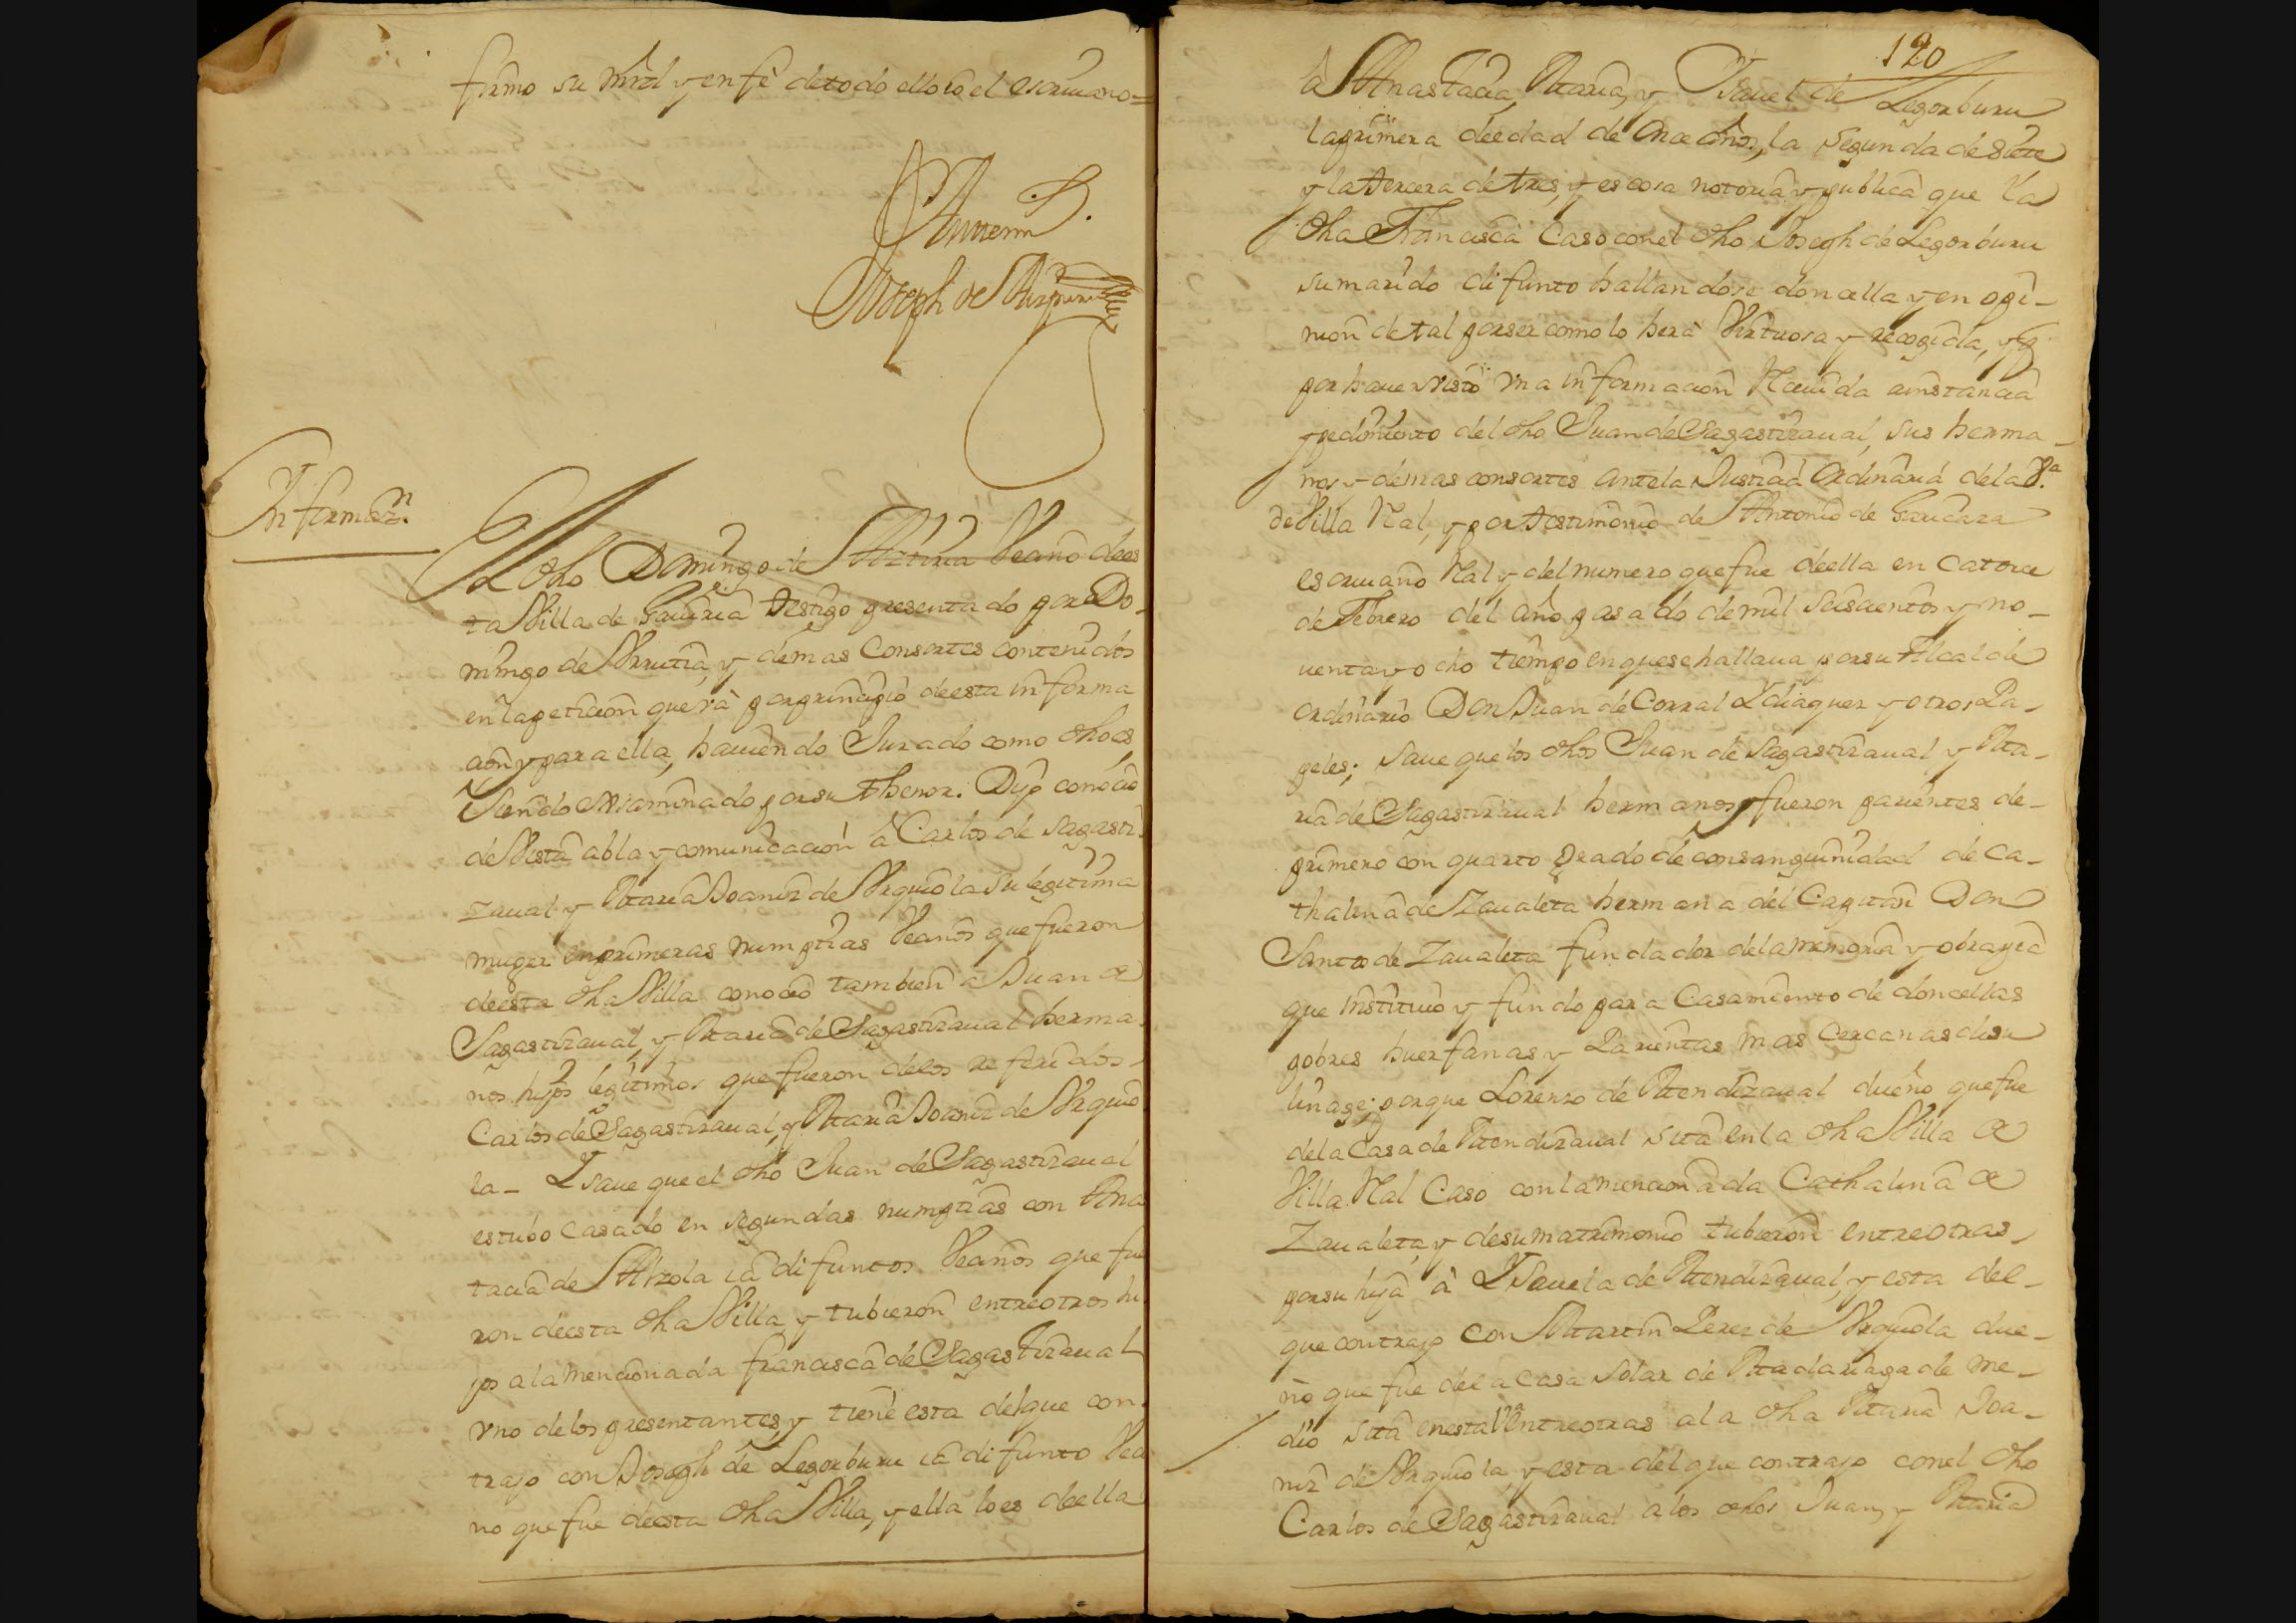 firmo su mrd y en fe de todo ello io el escriuano=
Ante mi
Joseph de
Informazn.
El dho Domingo de Aztiria Vecino de es
ta Villa de Gauiria testigo presentado por Do-
mingo de Vrrutia, y demas Consortes contenidos
en la peticion que va por principio de esta informa
cion y para ella, hauiendo Jurado como dho es,
Siendo examinado por su thenor. Dijo conocio
de Vista abla y comunicacion à Carlos de Sagasti-
zaual y Maria Joaniz de Vrquiola su legitima
muger en primeras numptias Vecinos que fueron
de esta dha Villa conocio tambien a Juan de
Sagastizaual, y Maria de Sagastizaual herma-
nos hijos legitimos que fueron de los referidos
Carlos de Sagastizaual, y Maria Joaniz de Vrquio
la- Y saue que el dho Juan de Sagastizaual
estubo casado en segundas numptias con Anas
tacia de Arzola ia difuntos Vecinos que fue
ron de esta dha Villa y tubieron entre otros hi
jos a la mencionada francisca de Sagastizaual
vno de los presentantes, y tiene esta del que con-
trajo con Joseph de Legorburu ia difunto Veci
no que fue de esta dha Villa, y ella lo es de ella
120
à Anastacia, Maria, y Ysauel de Legorburu
la primera de edad de once años, la segunda de siete
y la tercera de tres, y es cosa notoria y publica que la
dha Francisca Caso con el dho Joseph de Legorburu
su marido difunto hallandose doncella y en opi-
nion de tal por ser como lo hera Virtuosa y recogida, y q
por hauer visto vna informacion Recuida a instancia
y pedimiento del dho Juan de Sagastizaual, sus herma-
nos y demas consortes ante la Justicia Ordinaria de la Va
de Villa Real, y por testimonio de Antonio de
escriuano Real y del numero que fue de ella en catorce
de Febrero del año pasado de mil seiscientos y no-
uenta y ocho tiempo en que se hallaua por su Alcalde
ordinario Don Juan de Corral Ydiaquez y otros Pa-
peles; saue que los dhos Juan de Sagastizaual y Ma-
ria de Sagastizaual hermanos fueron parientes de
primero con quarto grado de consanguinidad de Ca-
thalina de Zaualeta hermana del Capitan Don
Santos de Zaualeta fundador de la memoria y obra pia
que Instituio y fundo para Casamiento de doncellas
pobres huerfanas y Parientas mas Cercanas de su
linage; porque Lorenzo de Mendizaual dueño que fue
de la Casa de Mendizaual sita en la dha Villa de
Villa Real Caso con la mencionada Cathalina de
Zaualeta, y de su matrimonio tubieron entre otras
por su hija à Ysauela de Mendizaual, y esta del
que contrajo con Martin Perez de Vrquiola due-
ño que fue de la casa solar de Madariaga de me-
dio sita en esta Va entre otras a la dha Maria Joa-
niz de Vrquiola, y esta del que contrajo con el dho
Carlos de Sagastizaual a los dhos Juan, y Maria